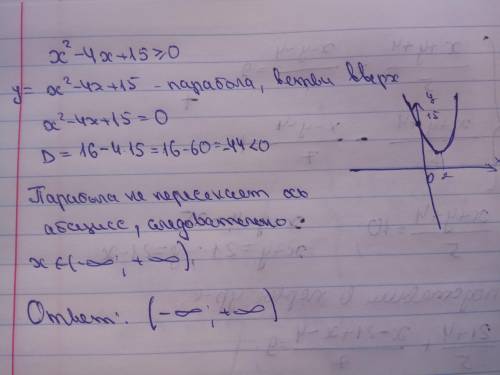 x² - 4x + 15 ≥ 0
y = x² - 4x + 15 - парабола, ветви вверх
x² - 4x + 15 = 0
D = 16 - 4·15 = 16 - 60 = -44 < 0
Парабола не пересекает ось
абсцисс, следовательно:
x ∈ (-∞; +∞).
Ответ: (-∞; +∞)
y
15
0 2